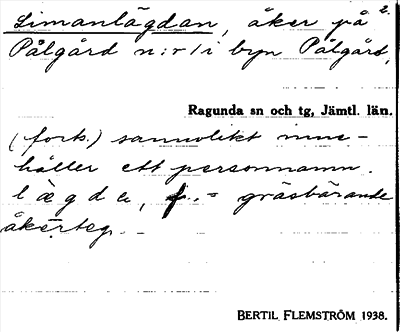 2.
Simanlägdan, åker på
Pålgård n:r 1 i byn Pålgård,
Ragunda sn och tg, Jämtl. län.
(forts.) sannolikt inne-
håller ett personnamn.
lägde, f. = gräsbärande
åkerteg.
BERTIL FLEMSTRÖM 1938.